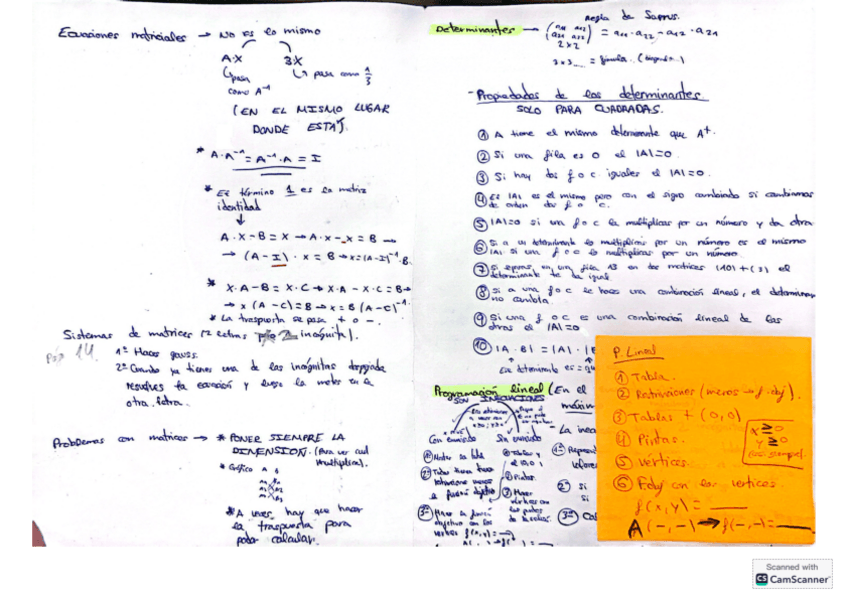 Ecuaciones matriciales → NO ES lo mismo
A·X 3·X
pasa como A⁻¹
pasa como 1/3
(EN EL MISMO LUGAR
DONDE ESTA).
* A·A⁻¹ = A⁻¹·A = I
* El término 1 es la matriz
identidad
A·X-B=X → A·X-X=B →
→ (A-I)·X=B → X=(A-I)⁻¹·B.
* X·A-B=X·C → X·A-X·C=B →
→ X(A-C)=B → X=B(A-C)⁻¹.
* La traspuesta se pasa + o -.
Sistemas de matrices (2 letras 2 incógnitas).
Pág 14.
1º Haces gauss.
2º Cuando ya tienes una de las incógnitas despejada
resuelves la ecuación y luego la metes en la
otra letra.
Problemas con matrices → * PONER SIEMPRE LA
DIMENSION. (Para ver cual
multiplica).
* Gráfico A B
* A veces hay que hacer
la traspuesta para
poder calcular.
Regla de Sarrus.
Determinantes → (a11 a12 a21 a22) = a11·a22 - a12·a21
2x2
3x3... = fórmula.
- Propiedades de los determinantes
SOLO PARA CUADRADAS.
① A tiene el mismo determinante que At.
② Si una fila es 0 el |A|=0.
③ Si hay dos f o c iguales el |A|=0.
④ El |A| es el mismo pero con el signo cambiado si cambiamos
de orden dos f o c.
⑤ |A|=0 si una f o c la multiplicas por un número y da otra
⑥ Si a un determinante lo multiplicas por un número es el mismo
|A| si una f o c lo multiplicas por un número.
⑦ Si separas en una fila 13 en dos matrices (10)+(3) el
determinante te da igual.
⑧ Si a una f o c le haces una combinación lineal, el determinante
no cambia.
⑨ Si una f o c es una combinación lineal de las
otras el |A|=0
⑩ |A·B| = |A|·|B
Programación lineal (En el
SON INECUACIONES
máxim
Con enunciado Sin enunciado
La inec
P. Lineal
① Tabla.
② Restricciones (menos → f. obj).
③ Tablas + (0,0)
④ Pintas.
⑤ vértices.
⑥ F.obj con los vértices
x ≥ 0
y ≥ 0
(casi siempre).
f(x,y) = ___
A(-,-) → f(-,-)=___
Scanned with
CS CamScanner